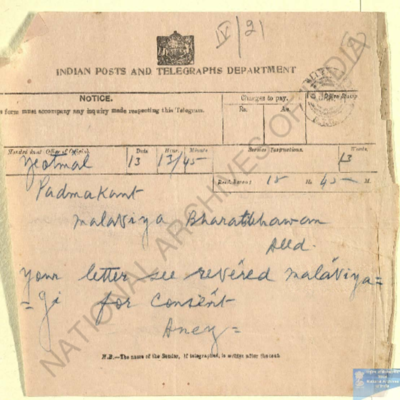 IV/21
INDIAN POSTS AND TELEGRAPHS DEPARTMENT
NOTICE.
Charges to pay.
form must accompany any inquiry made respecting this Telegram.
Rs. As.
Handed in at (Office of Origin). Date. Hour. Minute. Service Instructions. Words.
Yeotmal 13 13/45 13
Recd. here at 15 H. 45 M.
Padmakant
Malaviya Bharatibhawan
Alld.
Your letter see revered malaviya=
=gi for consent
Aney=
N.B.—The name of the Sender, if telegraphed, is written after the text.
NATIONAL ARCHIVES OF INDIA